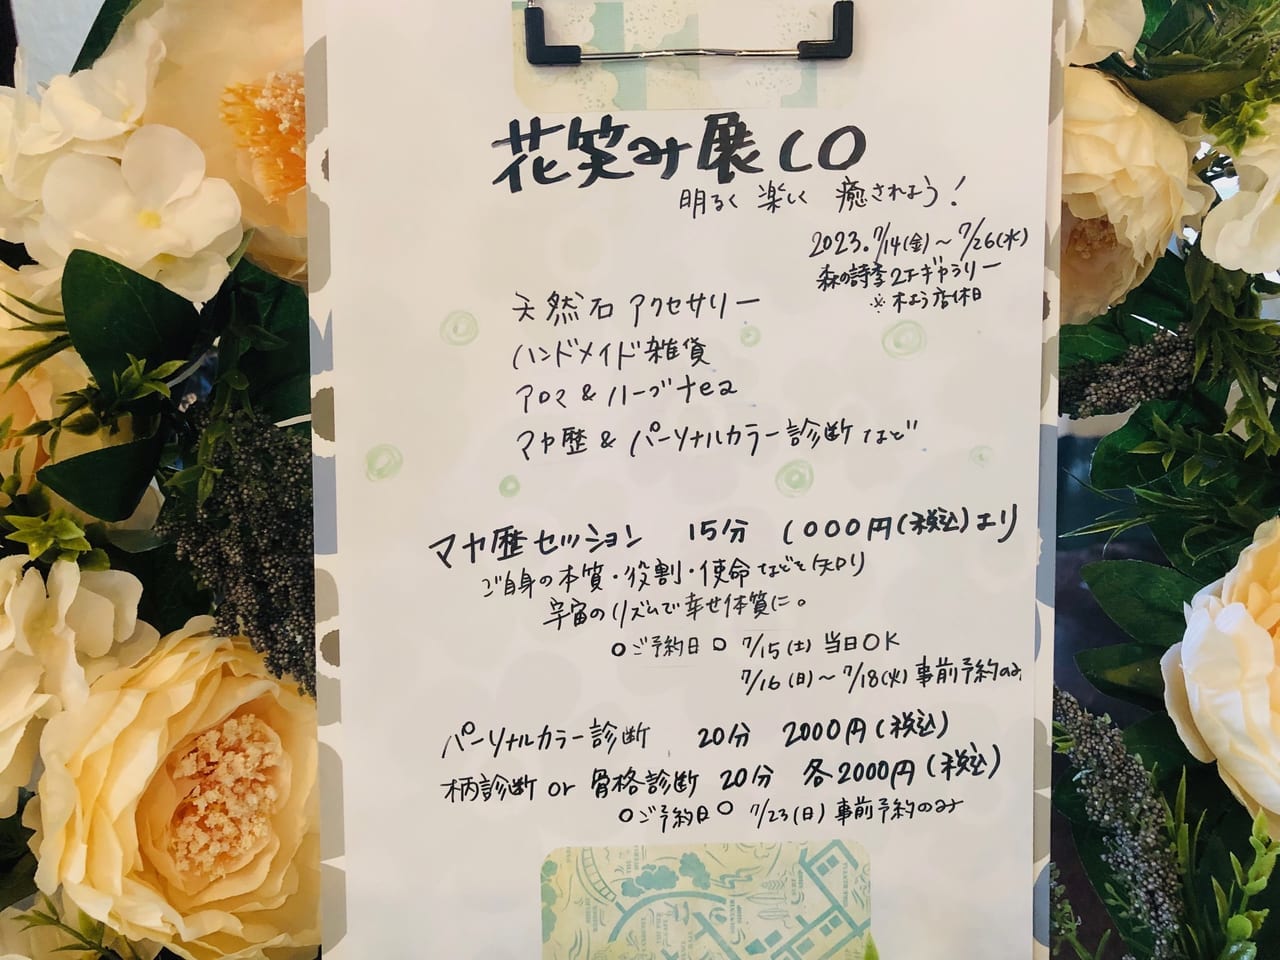 花笑み展 CO
明るく 楽しく 癒されよう!
2023.7/14(金)~7/26(水)
森の詩季2Fギャラリー
※木よう店休日
天然石 アクセサリー
ハンドメイド雑貨
アロマ & ハーブtea
マヤ暦 & パーソナルカラー診断 など
マヤ暦セッション 15分 1000円(税込)より
ご自身の本質・役割・使命などを知り
宇宙のリズムで幸せ体質に。
○ご予約日○ 7/15(土) 当日OK
7/16(日)~7/18(火) 事前予約のみ
パーソナルカラー診断 20分 2000円(税込)
柄診断 or 骨格診断 20分 各2000円(税込)
○ご予約日○ 7/23(日) 事前予約のみ